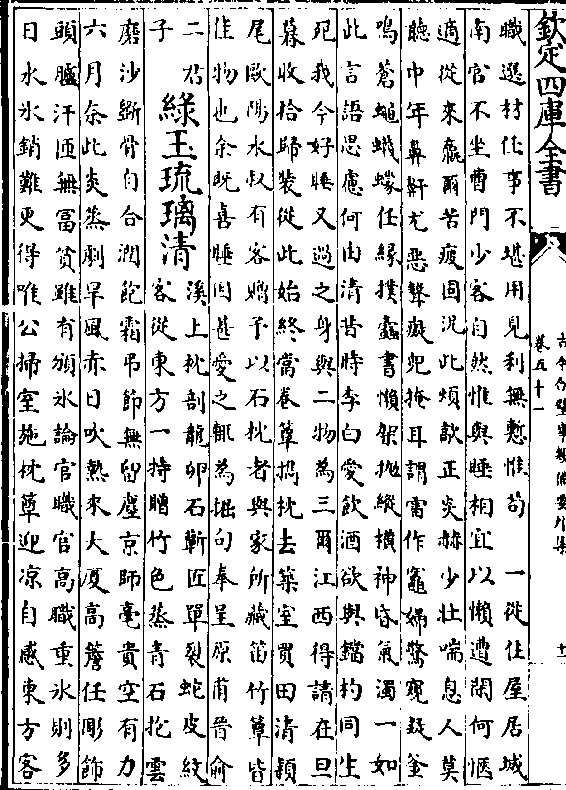 欽定四庫全書
古今合璧事類備要外集
卷五十一
十一
職選材任事不堪用見利無慙惟苟 一從住屋居城
南官不坐曹門少客自然惟與睡相宜以懶遭閑何愜
適從來羸爾苦疲困況此煩歊正炎赫少壯喘息人莫
聽中年鼻鼾尤惡聲癡兒掩耳謂雷作竈婦驚窺疑釜
鳴蒼蠅蠛蠓任緣撲蠹書懶架抛縱橫神昏氣濁一如
此言語思慮何由清昔時李白愛飲酒欲與鐺杓同生
死我今好睡又過之身與二物為三爾江西得請在旦
暮收拾歸裝從此始終當卷簟擕枕去築室買田清潁
尾歐陽永叔有客贈予以石枕者與家所藏笛竹簟皆
佳物也余既喜睡因甚愛之輒為掘句奉呈原甫晉俞
二君
子
綠玉琉璃清
溪上枕剖龍卵石蘄匠單裂蛇皮紋
客從東方一持贈竹色蒸青石抱雲
磨沙斲骨自合潤飽霜弔節無留塵京師毫貴空有力
六月奈此炎蒸劇旱風赤日吹熱來大厦高簷任彫飾
頭臚汗匝無富貧雖有頒氷論官職官高職重氷則多
日永氷銷難更得唯公掃室施枕簟迎凉自感東方客